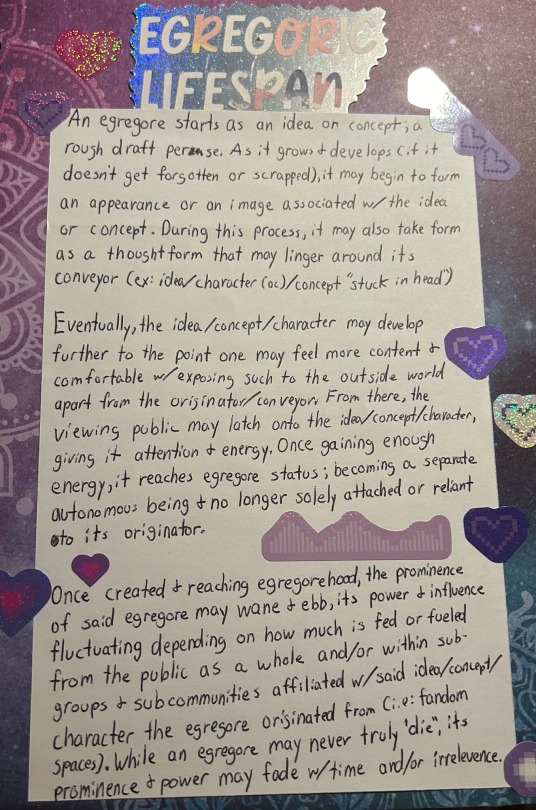 EGREGORIC
LIFESPAN
An egregore starts as an idea or concept; a
rough draft perse. As it grows & develops (if it
doesn't get forgotten or scrapped), it may begin to form
an appearance or an image associated w/ the idea
or concept. During this process, it may also take form
as a thoughtform that may linger around its
conveyor (ex: idea/character (oc)/concept "stuck in head")
Eventually, the idea/concept/character may develop
further to the point one may feel more content &
comfortable w/exposing such to the outside world
apart from the originator/conveyor. From there, the
viewing public may latch onto the idea/concept/character,
giving it attention & energy. Once gaining enough
energy, it reaches egregore status; becoming a separate
autonomous being & no longer solely attached or reliant
oto its originator.
Once created & reaching egregorehood, the prominence
of said egregore may wane & ebb, its power & influence
fluctuating depending on how much is fed or fueled
from the public as a whole and/or within sub-
groups & subcommunities affiliated w/said idea/concept/
character the egregore originated from (i.e: fandom
spaces). While an egregore may never truly 'die", its
prominence & power may fade w/time and/or irrelevence.